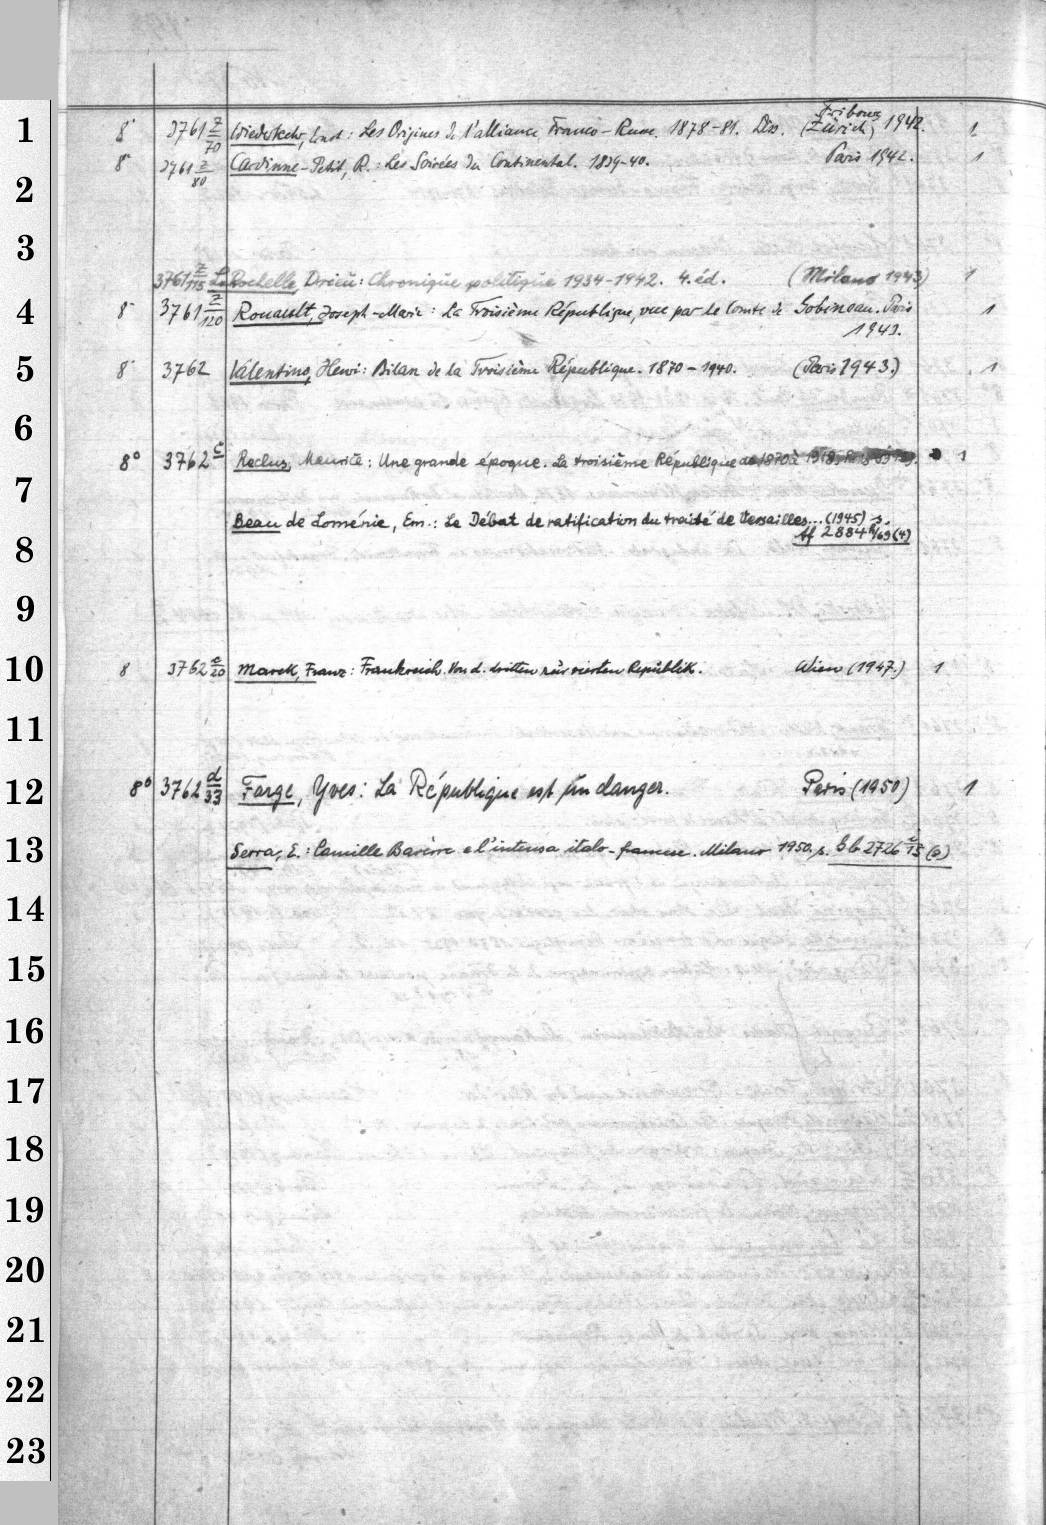 1
8° 3761 z/70 Wiederkehr, Ernst: Les Origines de l'alliance Franco-Russe. 1878-81. Diss. (Fribourg Zürich) 1942. 1
8° 3761 z/80 Cardinne-Petit, R.: Les Soirées du Continental. 1839-40. Paris 1942. 1
2
3
3761 z/115 La Rochelle, Drieu: Chronique politique 1934-1942. 4. éd. (Milano 1943) 1
4
8° 3761 z/120 Rouault, Joseph-Marie: La Troisième République, vue par le Comte de Gobineau. Paris
1943.
5
8° 3762 Valentino, Henri: Bilan de la Troisième République. 1870-1940. (Paris 1943.) 1
6
8° 3762 c Reclus, Maurice: Une grande époque. La troisième République de 1870 à 1918. 1
7
Beau de Loménie, Em.: Le Débat de ratification du traité de Versailles... (1945) s.
8
2884 h/69 (4)
9
10
8 3762 c/20 Marek, Franz: Frankreich. Von d. dritten zur vierten Republik. Wien (1947.) 1
11
12
8° 3762 d/33 Farge, Yves: La République est un danger. Paris (1950) 1
13
Serra, E.: Camille Barère e l'intensa italo-francese. Milano 1950. s. Bb 2726 c/15 (2)
14
15
16
17
18
19
20
21
22
23